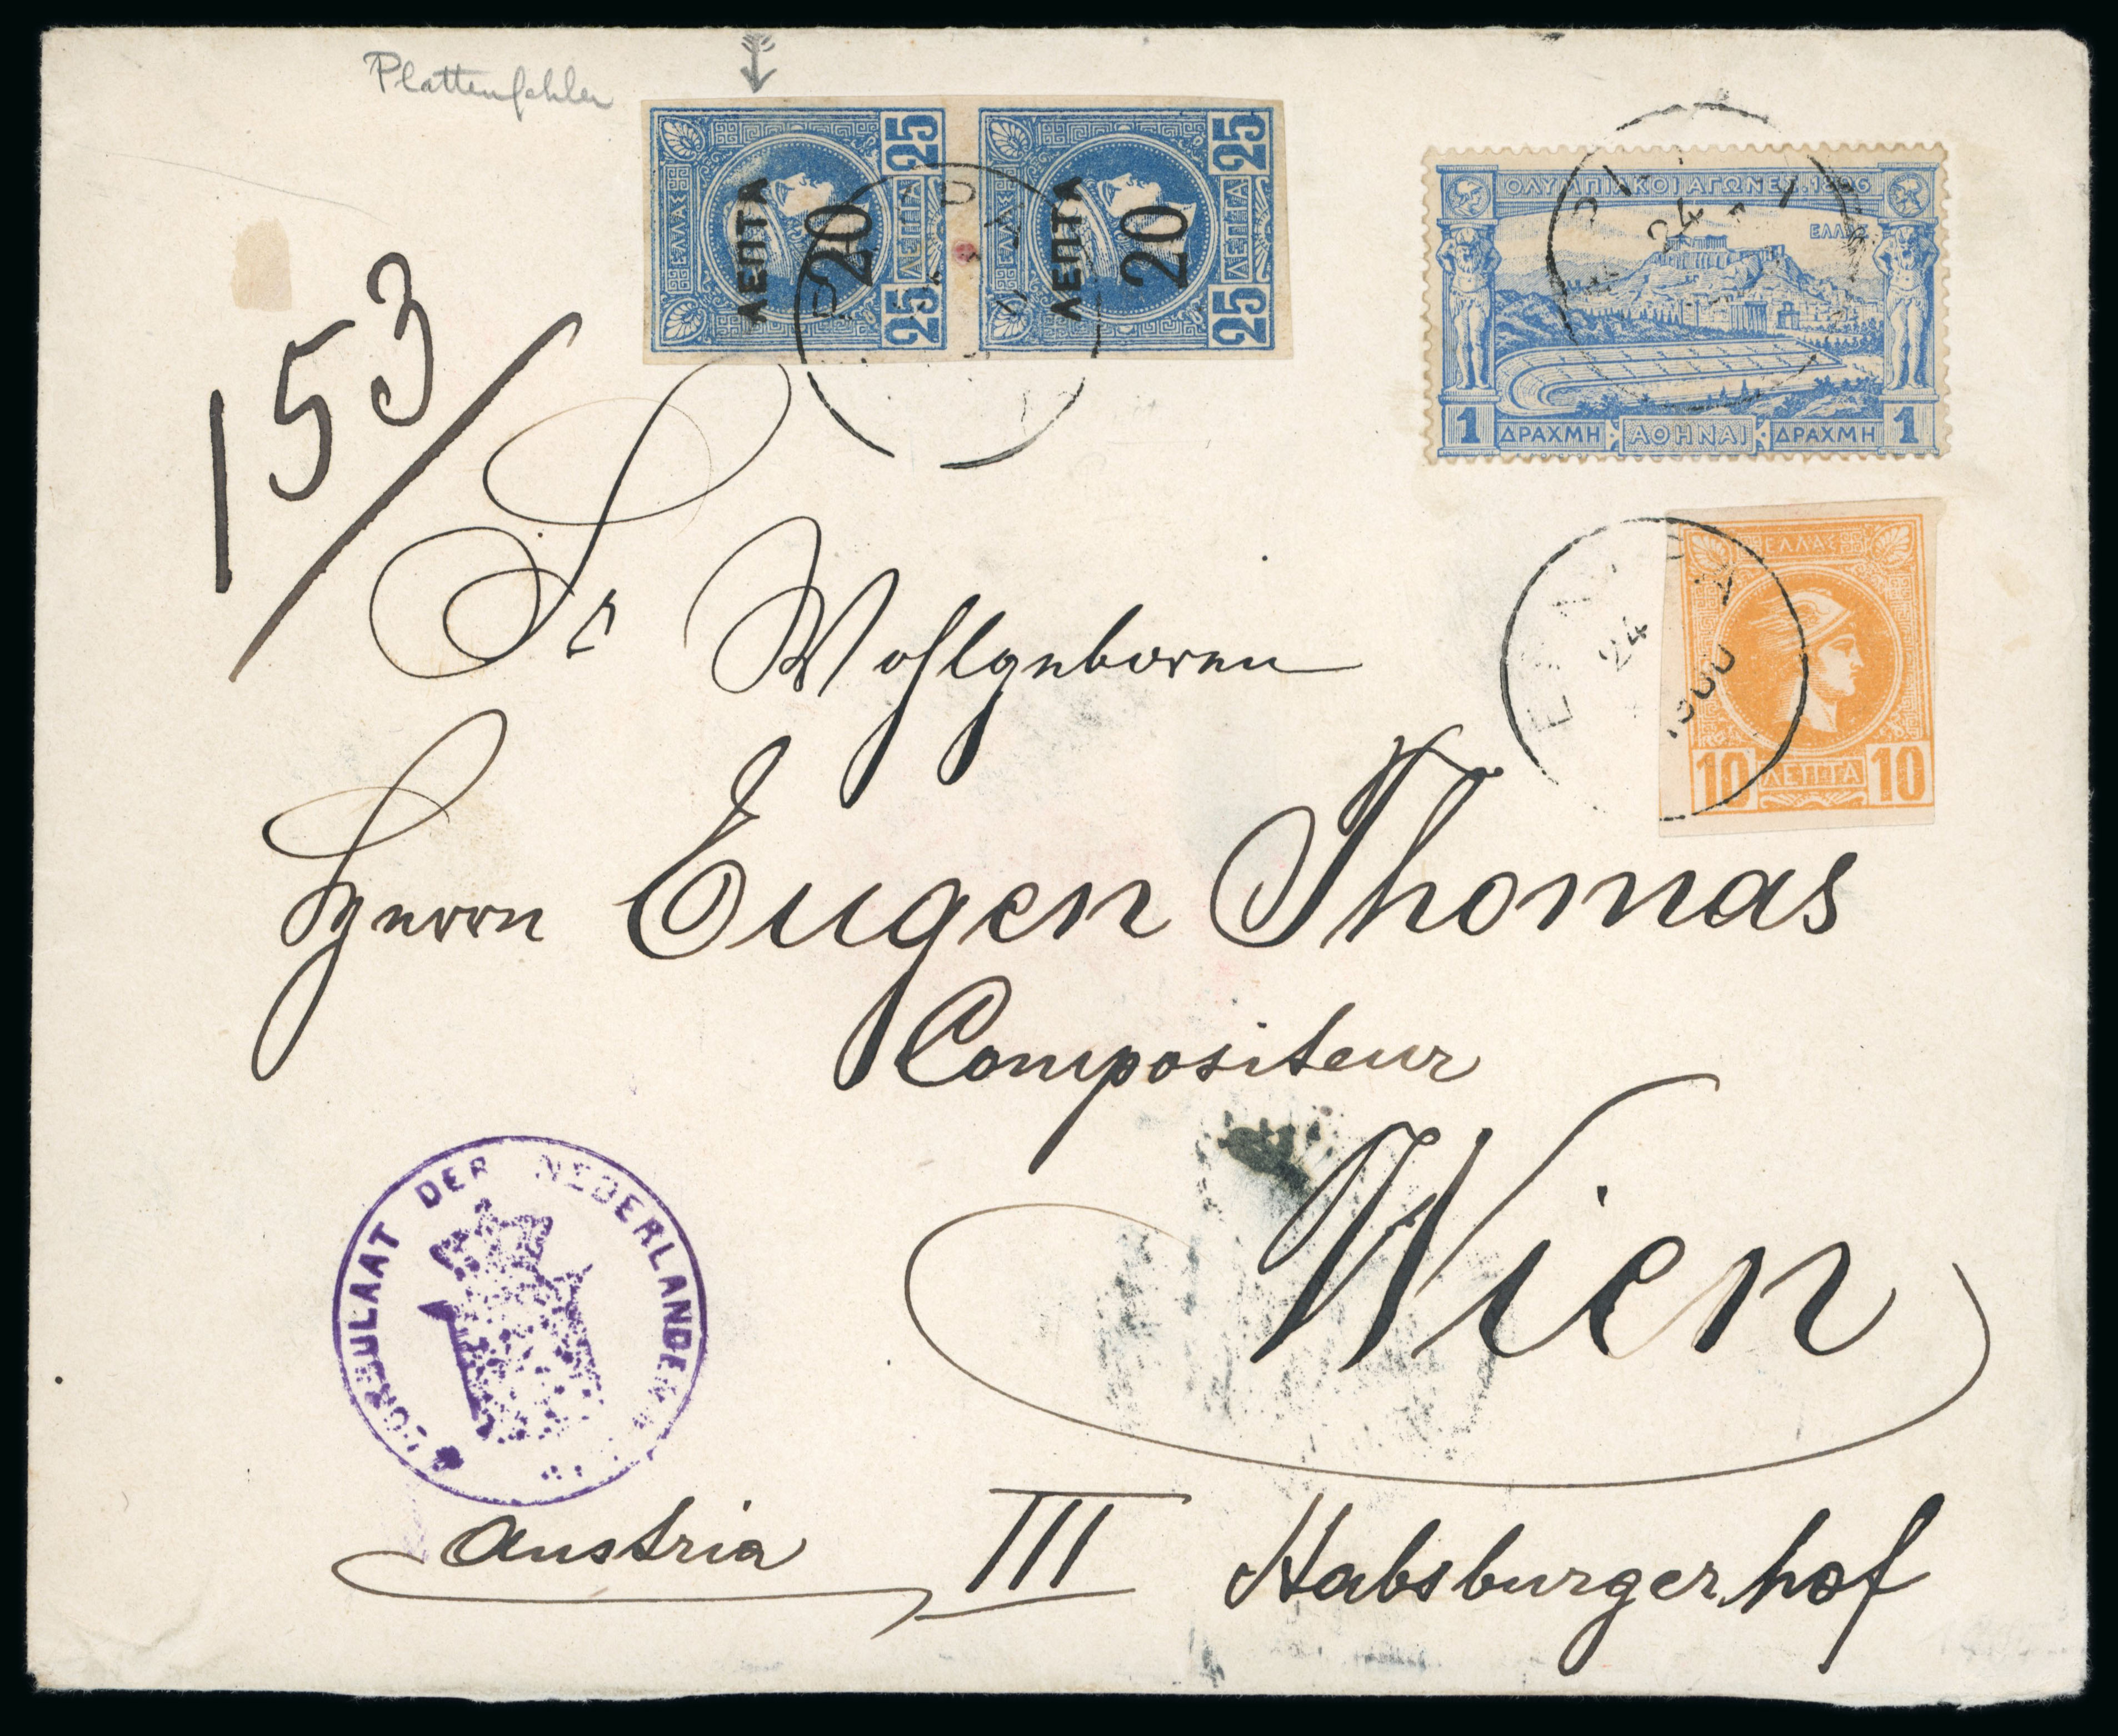 Plattenfehler
ΕΛΛΑΣ
25 ΛΕΠΤΑ 25
ΛΕΠΤΑ
20
ΕΛΛΑΣ
25 ΛΕΠΤΑ 25
ΛΕΠΤΑ
20
ΟΛΥΜΠΙΑΚΟΙ ΑΓΩΝΕΣ.1896
ΕΛΛΑΣ
24
1 ΔΡΑΧΜΗ ΑΘΗΝΑΙ ΔΡΑΧΜΗ 1
153
ΕΛΛΑΣ
24
1900
10 ΛΕΠΤΑ 10
Sr Wohlgeboren
Herrn Eugen Thomas
Compositeur
Wien
CONSULAAT DER NEDERLANDEN
Austria III Habsburgerhof